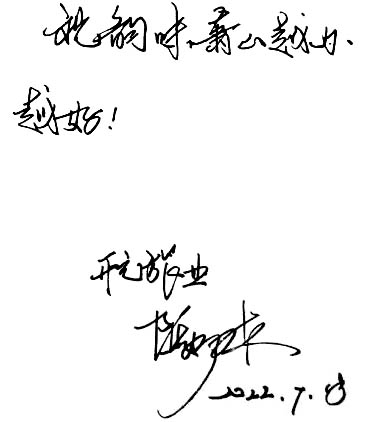 祝韵味萧山越办
越好！
开元旅业
2022.7.